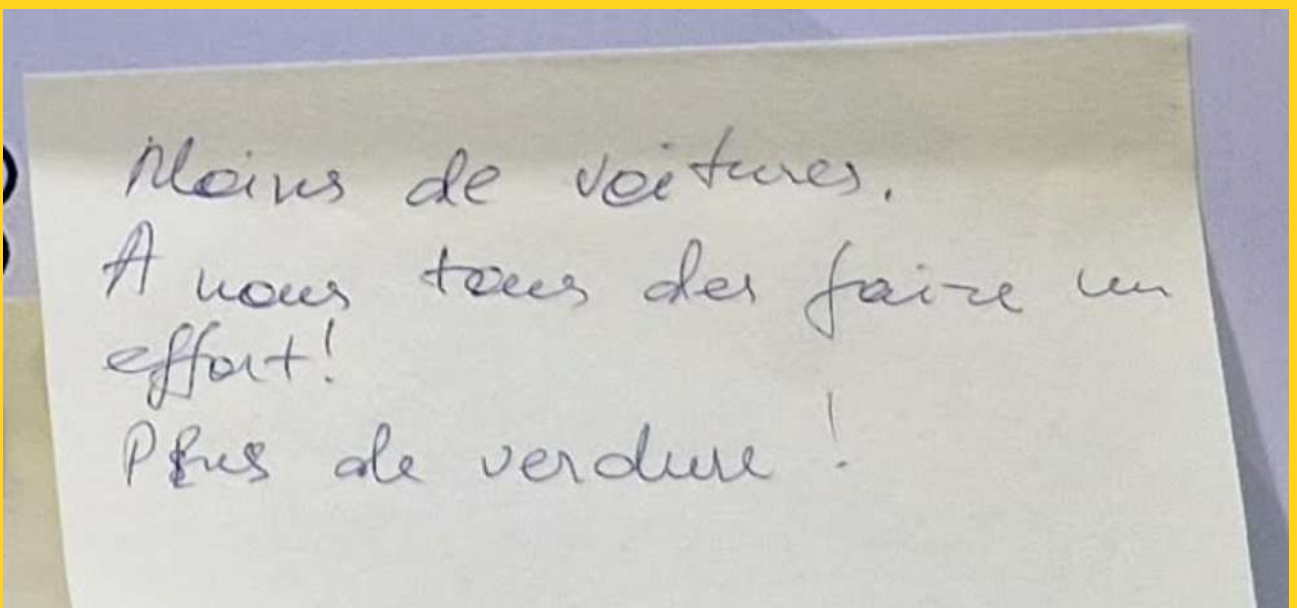 Moins de voitures.
A nous tous des faire un
effort!
Plus de verdure !